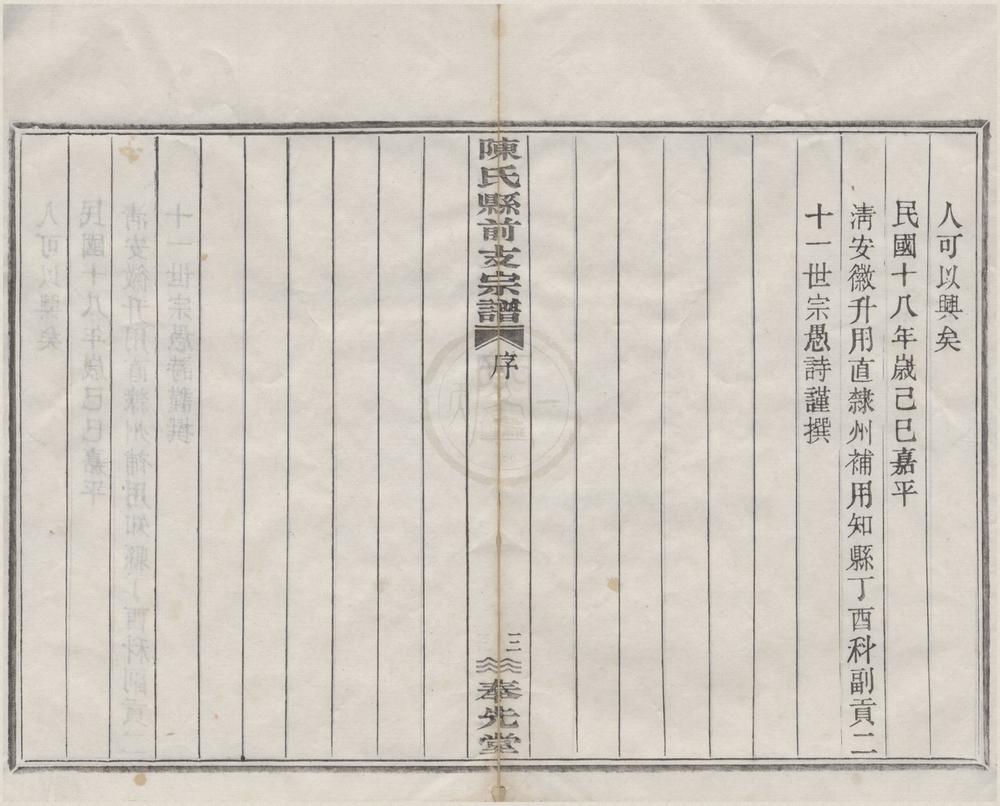 人可以興矣
民國十八年歲己巳嘉平
淸安徽升用直隸州補用知縣丁酉科副貢二
十一世宗愚詩謹撰
陳氏縣前支宗譜
序
三
奉先堂